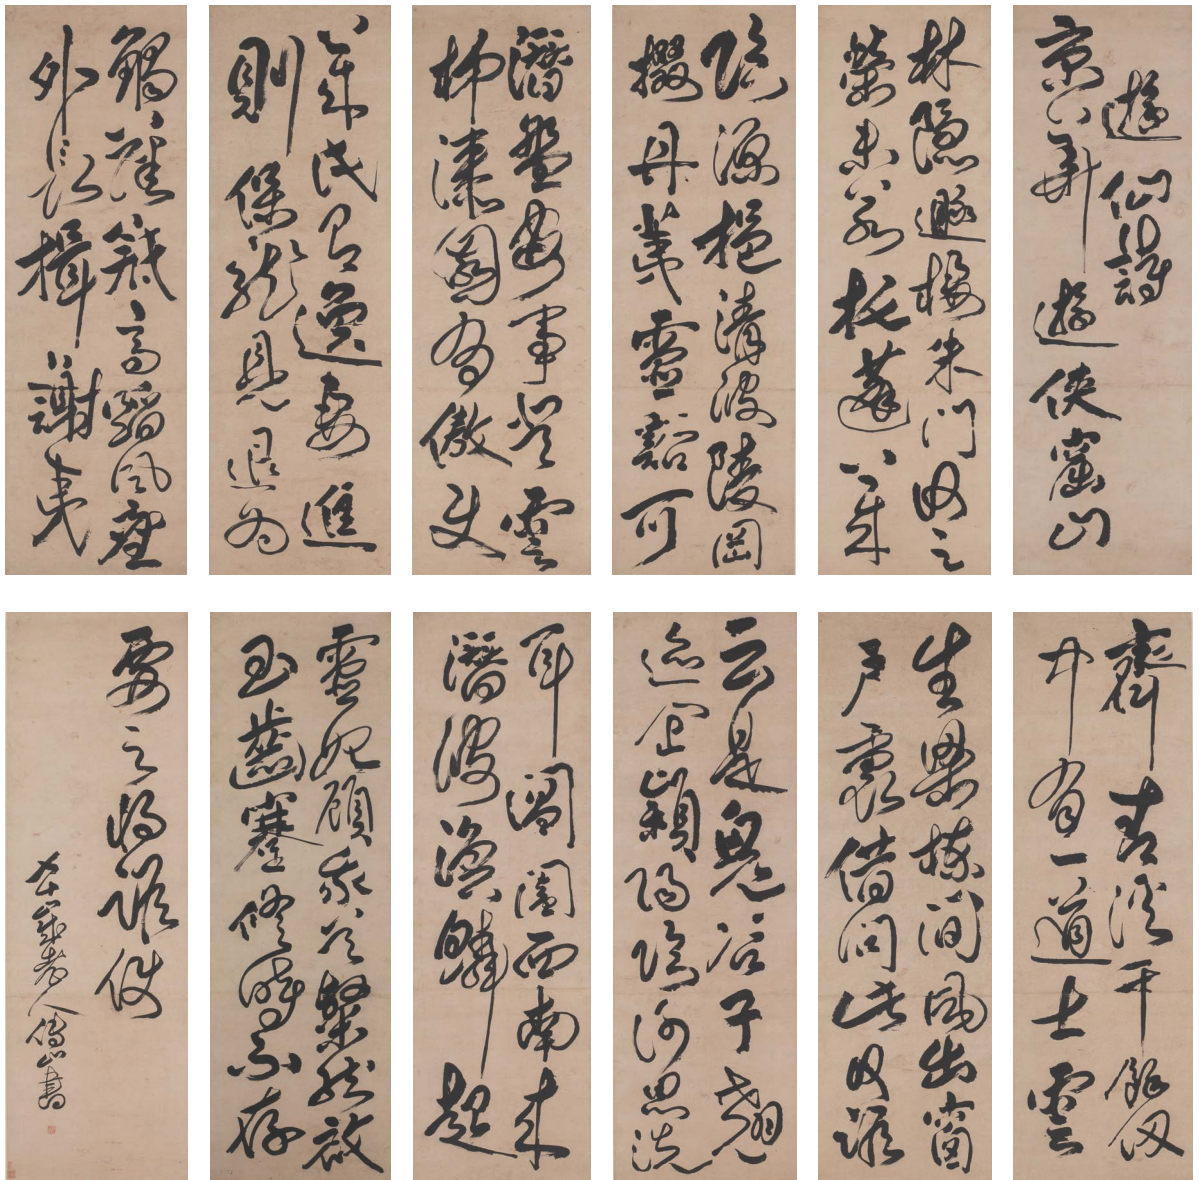 遊仙詩
京華遊俠窟山
林隱遯棲朱門何足
榮未若托蓬萊
臨源挹清波陵岡
掇丹荑靈谿可
潛盤安事登雲
梯漆園有傲吏
萊氏有逸妻進
則保龍見退為
觸藩羝高蹈風塵
外長揖謝夷
齊青溪千餘仞
中有一道士雲
生梁棟間風出窗
戶裏借問此何誰
云是鬼谷子翹
迹企潁陽臨河思洗
耳閶闔西南來
潛波渙鱗起
靈妃顧我笑粲然啟
玉齒蹇修時不存
要之將誰使
老人傅山書